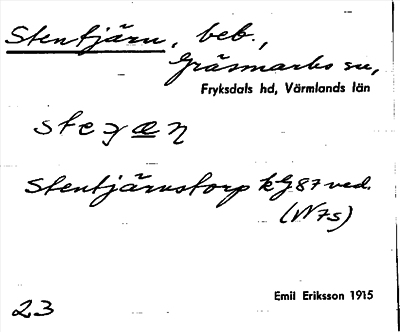 Stentjärn, beb.,
Gräsmarks sn,
Fryksdals hd, Värmlands län
Stentjärnstorp kG 87 ved.
(N7s)
23
Emil Eriksson 1915